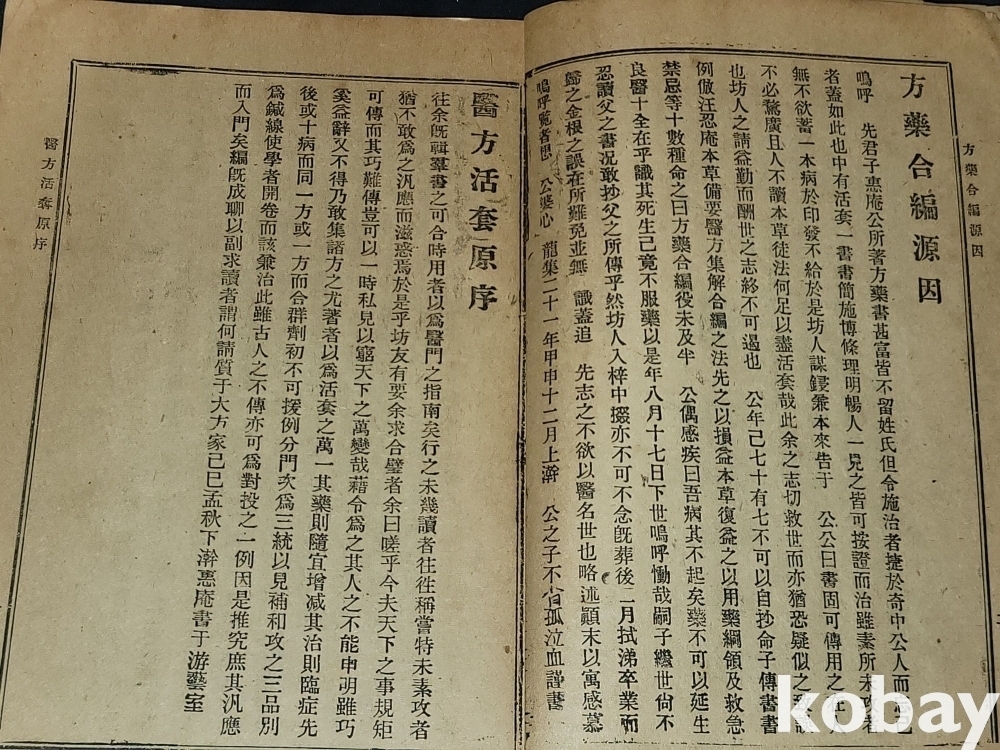 方藥合編源因
嗚呼 先君子惠庵公所著方藥書甚富皆不留姓氏但令施治者捷於奇中公人而
者蓋如此也中有活套一書書簡施博條理明暢人一見之皆可按證而治雖素所未
無不欲蓄一本病於印發不給於是坊人謀鋟兼本來告于 公公曰書固可傳用之
不必騖廣且人不讀本草徒法何足以盡活套哉此余之志切救世而亦猶恐疑似之
也坊人之請益勤而酬世之志終不可遏也 公年已七十有七不可以自抄命子傳書書
例倣汪忍庵本草備要醫方集解合編之法先之以損益本草復益之以用藥綱領及救急
禁忌等十數種命之曰方藥合編役未及半 公偶感疾曰吾病其不起矣藥不可以延生
良醫十全在乎識其死生已竟不服藥以是年八月十七日下世嗚呼慟哉嗣子繼世尙不
忍讀父之書況敢抄父之所傳乎然坊人入梓中掇亦不可不念旣葬後二月拭涕卒業而
歸之金根之誤在所難免並無 識蓋追 先志之不欲以醫名世也略述顚末以寓感慕
嗚呼覽者想 公婆心 龍集二十一年甲申十二月上澣 公之子不肖孤泣血謹書
方藥合編源因
醫方活套原序
往余旣輯羣書之可合時用者以爲醫門之指南矣行之未幾讀者往往稱嘗特未素攻者
猶不敢爲之汎應而滋惑焉於是乎坊友有要余求合璧者余曰嗟乎今夫天下之事規矩
可傳而其巧難傳豈可以一時私見以窮天下之萬變哉藉令爲之其人之不能申明雖巧
奚益辭又不得乃敢集諸方之尤著者以爲活套之萬一其藥則隨宜增減其治則臨症先
後或十病而同一方或一方而合群劑初不可援例分門次爲三統以見補和攻之三品別
爲鍼線使學者開卷而該兼治此雖古人之不傳亦可爲對投之一例因是推究庶其汎應
而入門矣編旣成聊以副求讀者謂何請質于大方家己巳孟秋下澣惠庵書于 游藝室
醫方活套原序
kobay